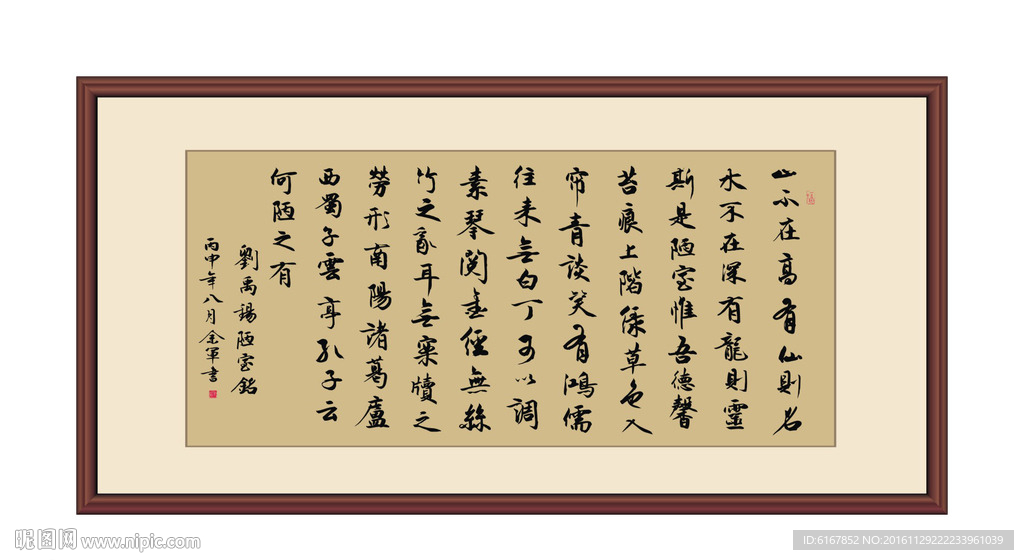 山不在高有仙則名
水不在深有龍則靈
斯是陋室惟吾德馨
苔痕上階緑草色入
帘青談笑有鴻儒
往来無白丁可以調
素琴閱金經無絲
竹之亂耳無案牘之
勞形南陽諸葛廬
西蜀子雲亭孔子云
何陋之有
劉禹錫陋室銘
丙申年八月金軍書
昵图网 www.nipic.com
ID:6167852 NO:20161129222233961039